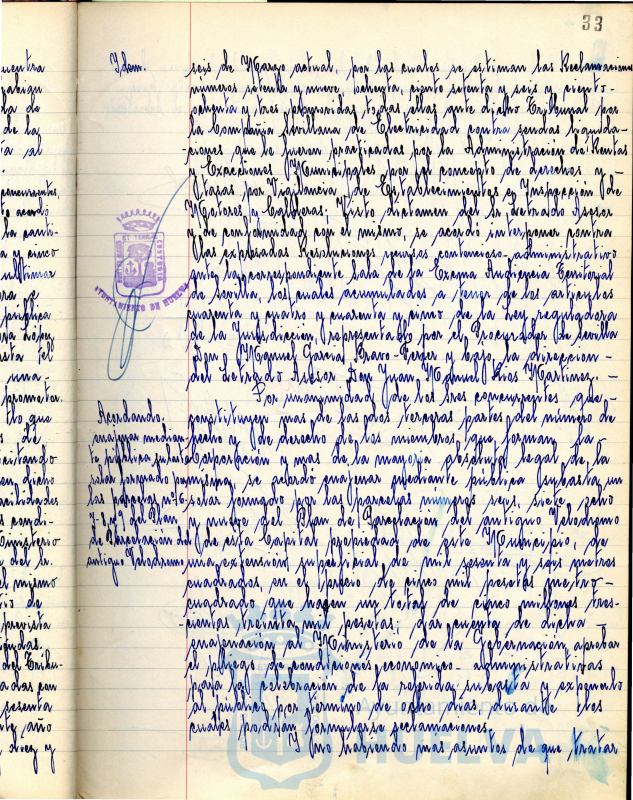 33
Idem.
seis de Marzo actual, por las cuales se estiman las Reclamaciones
números setenta y nueve, ochenta, ciento setenta y seis y ciento-
ochenta y tres promovidas todas ellas ante dicho Tribunal por
la Compañía Sevillana de Electricidad contra sendas liquida-
-ciones que le fueron practicadas por la Administración de Rentas
y Exacciones Municipales por el concepto de derechos y-
Tasas por Vigilancia de Establecimientos e Inspección de
Motores y Calderas; Visto dictamen del Sr. Letrado Asesor
y de conformidad con el mismo, se acordó interponer contra
las expresadas Resoluciones recurso contencioso-administrativo
ante la correspondiente Sala de la Excma Audiencia Territorial
de Sevilla, los cuales acumulados a tenor de los artículos
cuarenta y cuatro y cuarenta y cinco de la Ley reguladora
de la Jurisdicción, representado por el Procurador de Sevilla
Don Manuel García Bravo-Ferrer y bajo la dirección-
del Letrado Asesor, Don Juan Manuel Ríos Martínez.-
Por unanimidad de los tres concurrentes que-
Acordando.
enajenar median-
te pública subasta
solar formado por
las parcelas nº 6-
7-8 y 9 del Plan
de Parcelación del
antiguo Velodromo
constituyen mas de las dos terceras partes del número de
hecho y de derecho de los miembros que forman la-
Corporación y mas de la mayoría absoluta legal de la
misma, se acordó enajenar mediante pública subasta un
solar formado por las parcelas números seis, siete, ocho
y nueve del Plan de Parcelación del antiguo Velodromo
de esta Capital propiedad de este Municipio, de
una extensión superficial de mil sesenta y seis metros
cuadrados, en el precio de cinco mil pesetas metro-
cuadrado que hacen un total de cinco millones tres-
cientas treinta mil pesetas; dar cuenta de dicha-
enajenación al Ministerio de la Gobernación, aprobar
el pliego de condiciones económico-administrativas
para la celebración de la referida subasta y exponerlo
al público por término de ocho días, durante los
cuales podrán formularse reclamaciones.
Y no habiendo mas asuntos de que tratar
AYUNTAMIENTO DE HUELVA
Ayuntamiento
HUELVA